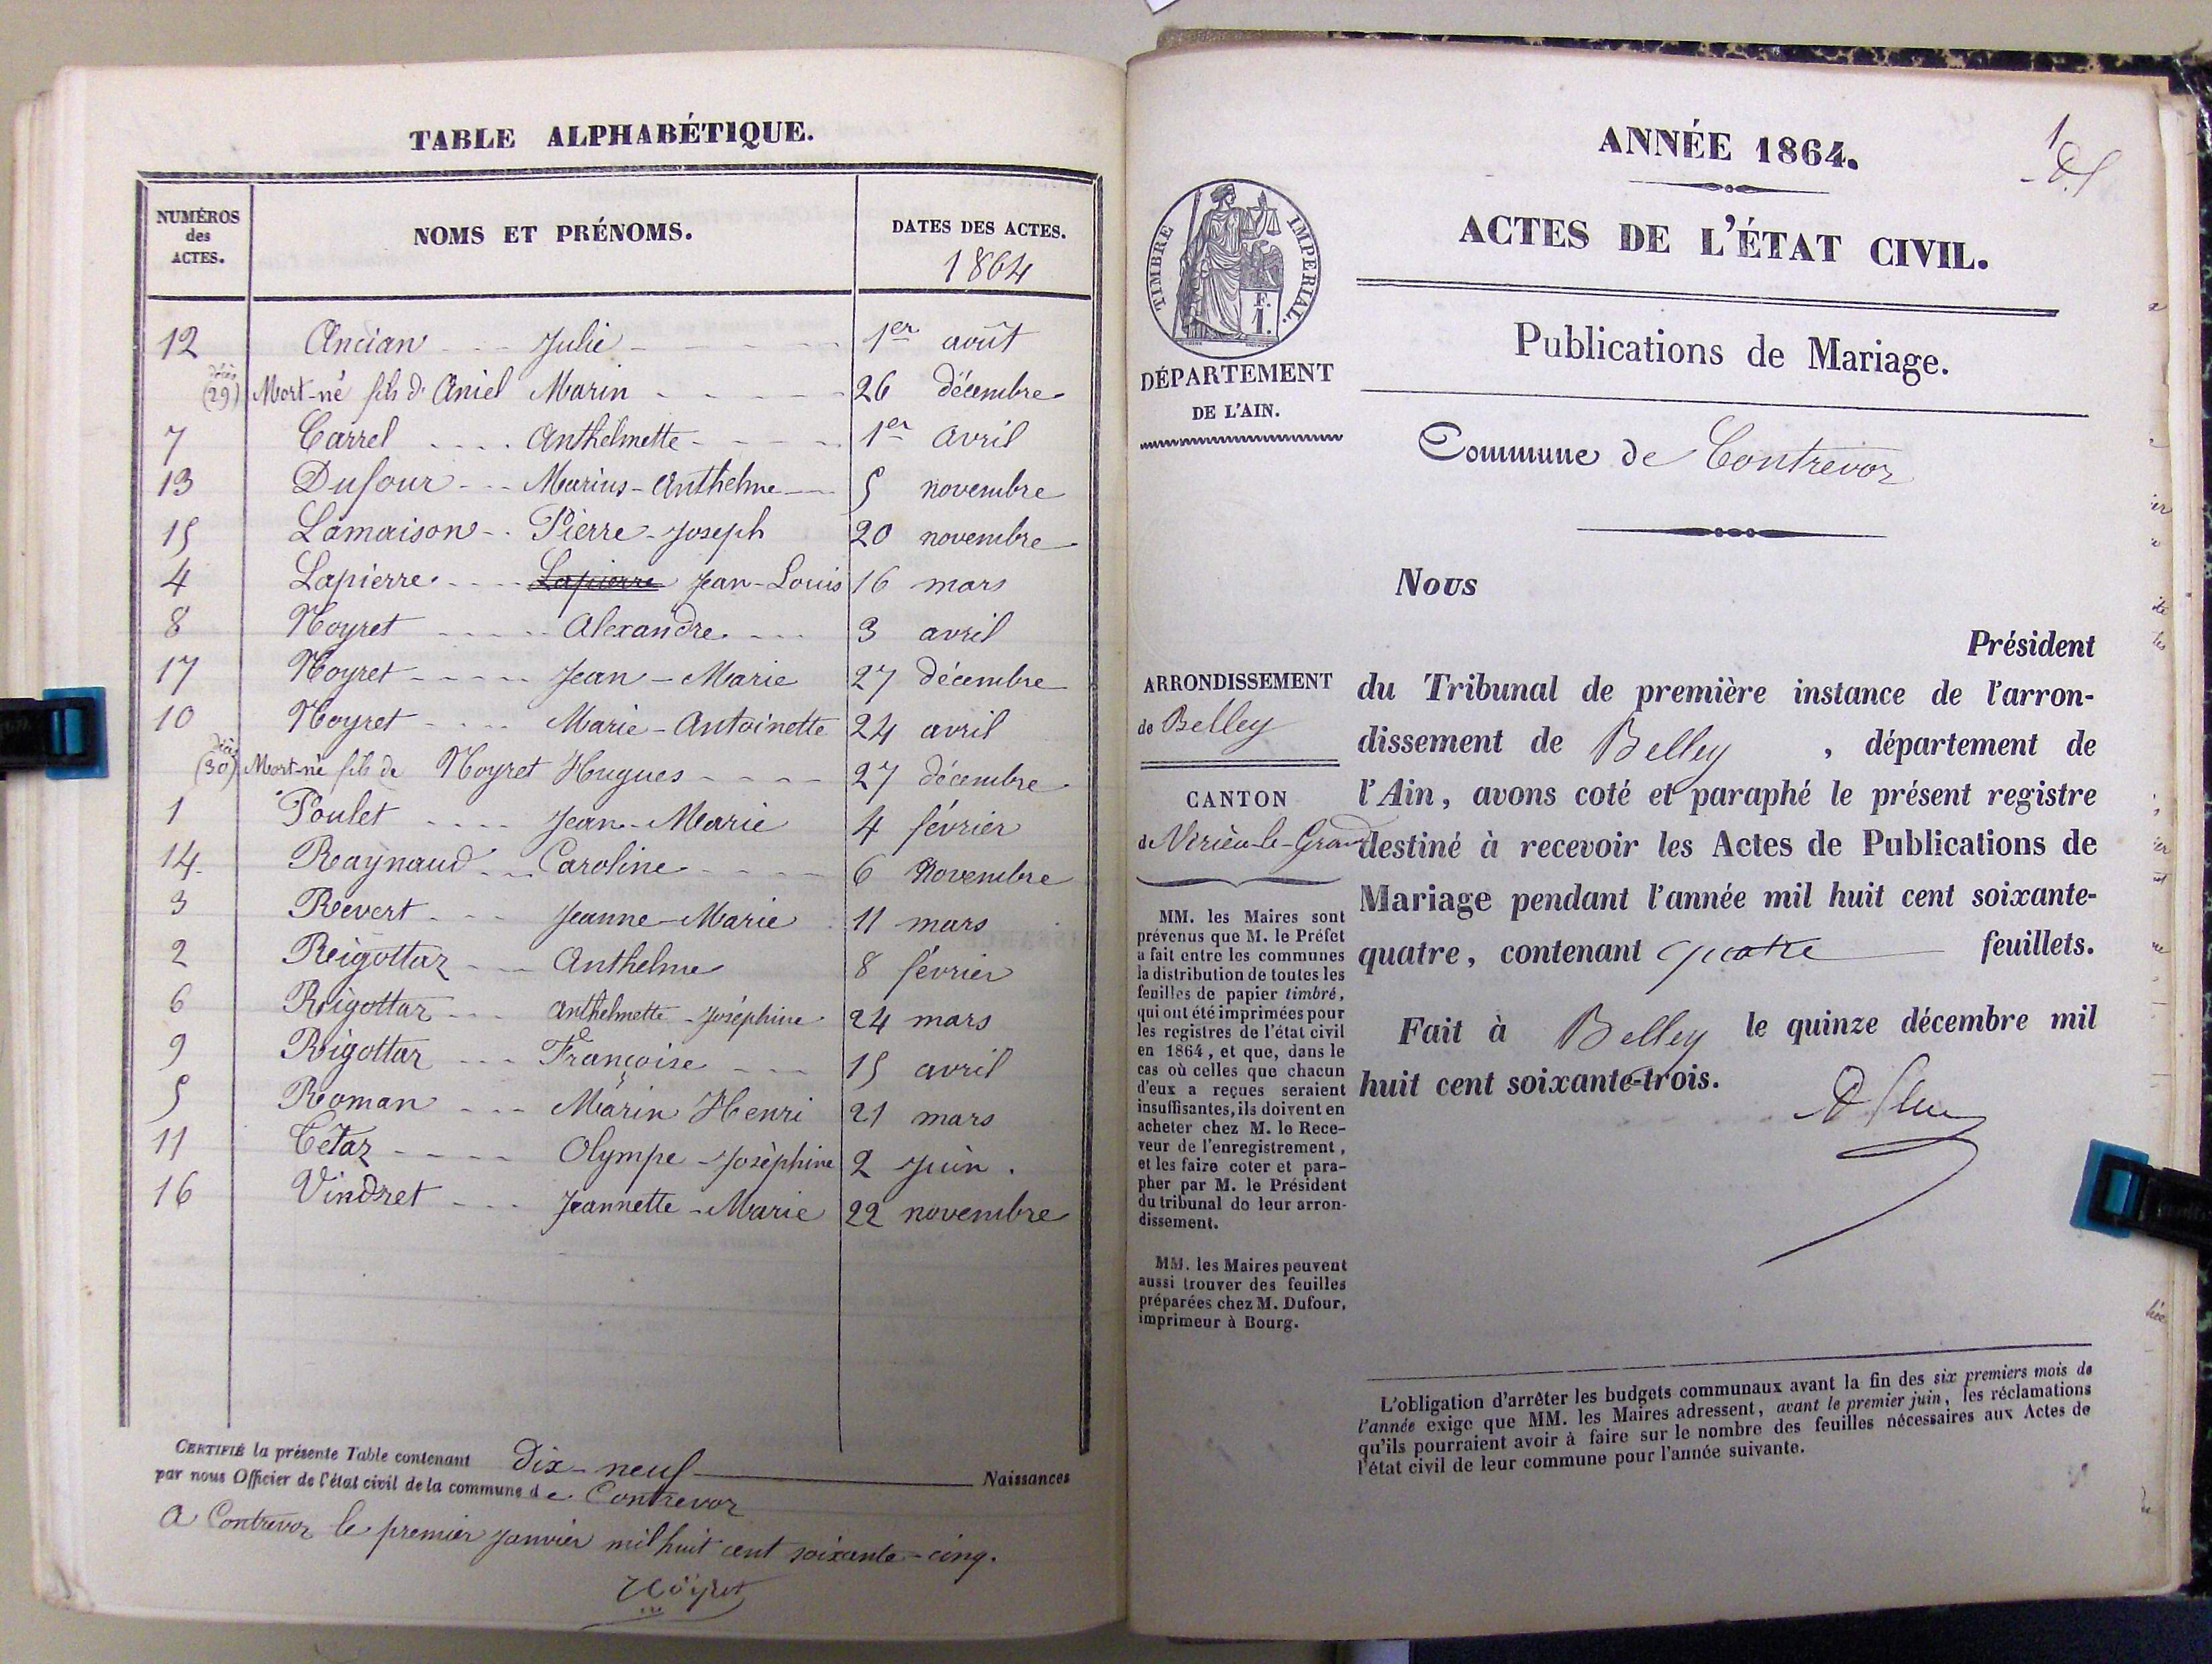 TABLE ALPHABÉTIQUE.
NUMÉROS des ACTES.
NOMS ET PRÉNOMS.
DATES DES ACTES.
1864
12 Ancian Julie 1er août
décès (29) Mort-né fils d'Aniel Marin 26 décembre
7 Carrel Anthelmette 1er avril
13 Dufour Marius-Anthelme 5 novembre
15 Lamaison Pierre-Joseph 20 novembre
4 Lapierre Lapierre Jean-Louis 16 mars
8 Noyret Alexandre 3 avril
17 Noyret Jean-Marie 27 décembre
10 Noyret Marie-Antoinette 24 avril
décès (30) Mort-né fils de Noyret Hugues 27 décembre
1 Poulet Jean-Marie 4 février
14 Raynaud Caroline 6 Novembre
3 Revert Jeanne-Marie 11 mars
2 Reigottaz Anthelme 8 février
6 Rigottaz Anthelmette-Joséphine 24 mars
9 Rigottaz Françoise 15 avril
5 Roman Marin Henri 21 mars
11 Tétaz Olympe-Joséphine 2 Juin.
16 Vindret Jeannette-Marie 22 novembre
CERTIFIÉ la présente Table contenant Dix-neuf Naissances
par nous Officier de l'état civil de la commune de Contrevoz
A Contrevoz le premier Janvier mil huit cent soixante-cinq.
Noyret
1
ANNÉE 1864.
ACTES DE L'ÉTAT CIVIL.
Publications de Mariage.
TIMBRE IMPÉRIAL.
F.
1.
DÉPARTEMENT
DE L'AIN.
Commune de Contrevoz
ARRONDISSEMENT
de Belley
CANTON
de Virieu-le-Grand
MM. les Maires sont
prévenus que M. le Préfet
a fait entre les communes
la distribution de toutes les
feuilles de papier timbré,
qui ont été imprimées pour
les registres de l'état civil
en 1864, et que, dans le
cas où celles que chacun
d'eux a reçues seraient
insuffisantes, ils doivent en
acheter chez M. le Rece-
veur de l'enregistrement,
et les faire coter et para-
pher par M. le Président
du tribunal de leur arron-
dissement.
MM. les Maires peuvent
aussi trouver des feuilles
préparées chez M. Dufour,
imprimeur à Bourg.
Nous
Président
du Tribunal de première instance de l'arron-
dissement de Belley, département de
l'Ain, avons coté et paraphé le présent registre
destiné à recevoir les Actes de Publications de
Mariage pendant l'année mil huit cent soixante-
quatre, contenant quatre feuillets.
Fait à Belley le quinze décembre mil
huit cent soixante-trois.
L'obligation d'arrêter les budgets communaux avant la fin des six premiers mois de
l'année exige que MM. les Maires adressent, avant le premier juin, les réclamations
qu'ils pourraient avoir à faire sur le nombre des feuilles nécessaires aux Actes de
l'état civil de leur commune pour l'année suivante.